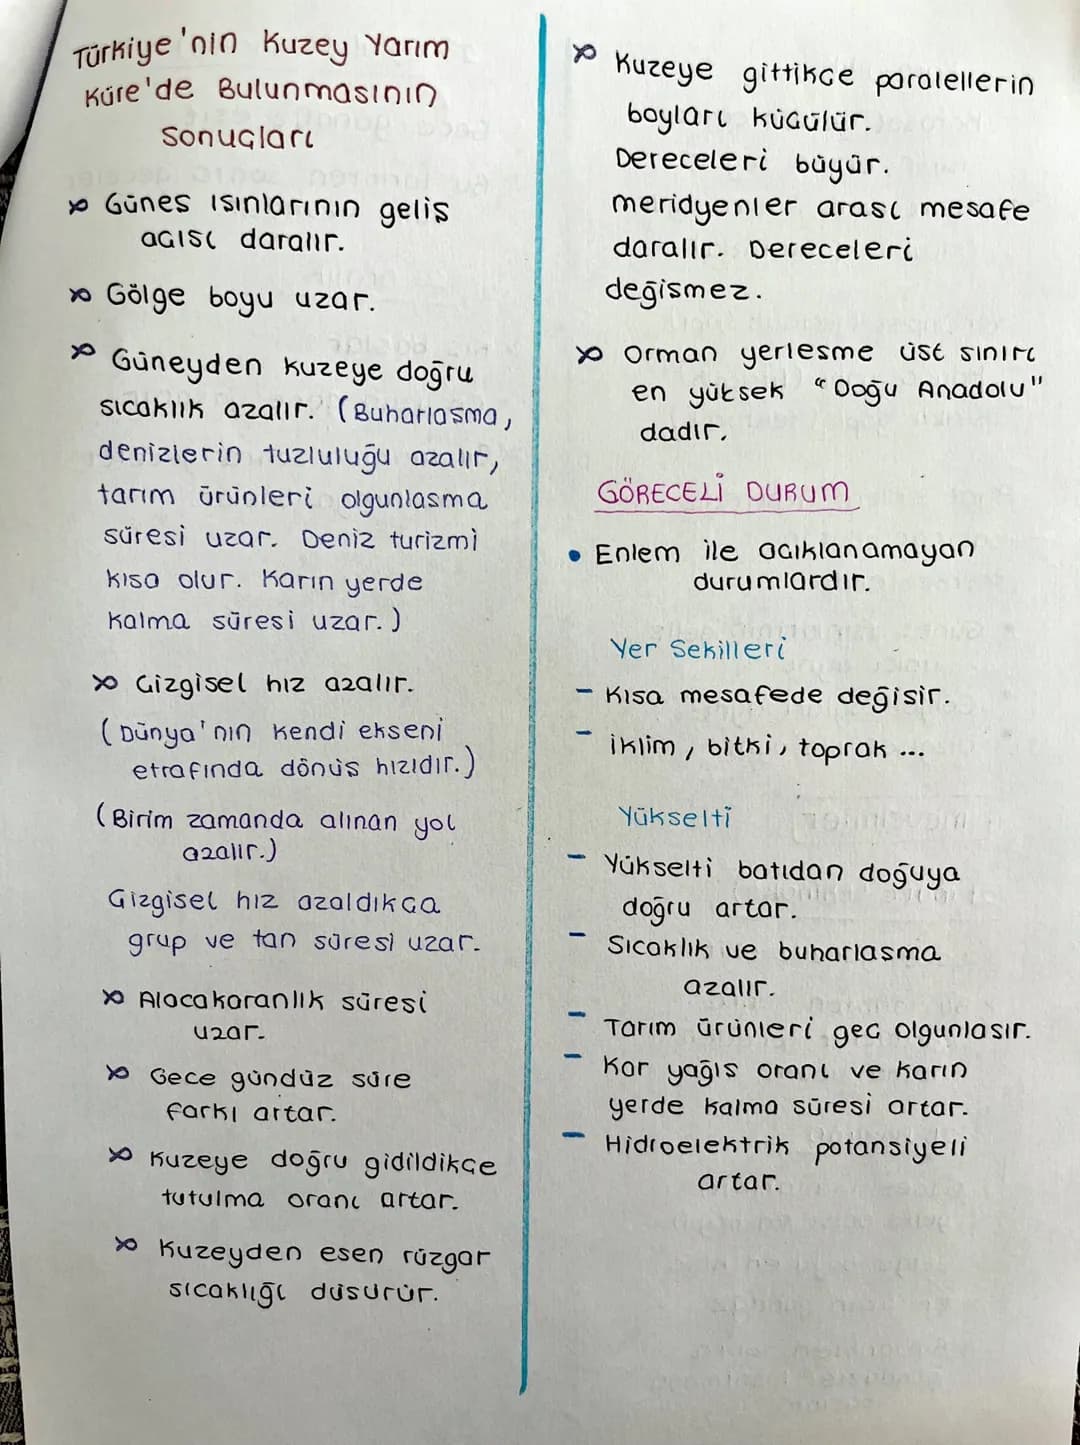 Türkiye'nin Kuzey Yarım
Küre'de Bulunmasının
Sonuçları
Güneş ışınlarının geliş
açısı daralır.
Gölge boyu uzar.
Güneyden kuzeye doğru
sıcaklık azalır. (Buharlaşma,
denizlerin tuzluluğu azalır,
tarım ürünleri olgunlaşma
süresi uzar. Deniz turizmi
kısa olur. Karın yerde
kalma süresi uzar.)
Çizgisel hız azalır.
(Dünya'nın kendi ekseni
etrafında dönüş hızıdır.)
(Birim zamanda alınan yol
azalır.)
Çizgisel hız azaldıkça
grup ve tan süresi uzar.
Alacakaranlık süresi
uzar.
Gece gündüz süre
farkı artar.
Kuzeye doğru gidildikçe
tutulma oranı artar.
Kuzeyden esen rüzgar
sıcaklığı düşürür.
Kuzeye gittikçe paralellerin
boyları küçülür.
Dereceleri büyür.
meridyenler arası mesafe
daralır. Dereceleri
değişmez.
Orman yerleşme üst sınırı
en yüksek "Doğu Anadolu"
dadır.
GÖRECELİ DURUM
• Enlem ile açıklanamayan
durumlardır.
Yer Şekilleri
- Kısa mesafede değişir.
- İklim, bitki, toprak ...
Yükselti
- Yükselti batıdan doğuya
doğru artar.
- Sıcaklık ve buharlaşma
azalır.
- Tarım ürünleri geç olgunlaşır.
- Kar yağış oranı ve karın
yerde kalma süresi artar.
- Hidroelektrik potansiyeli
artar.